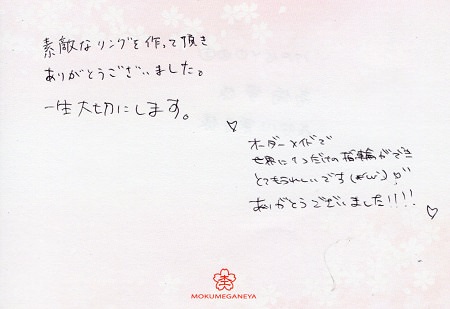 素敵なリングを作って頂き
ありがとうございました。
一生大切にします。
オーダーメイドで
世界に1つだけの指輪ができ
とてもうれしいです(*'ω'*)
ありがとうございました!!!!
MOKUMEGANEYA